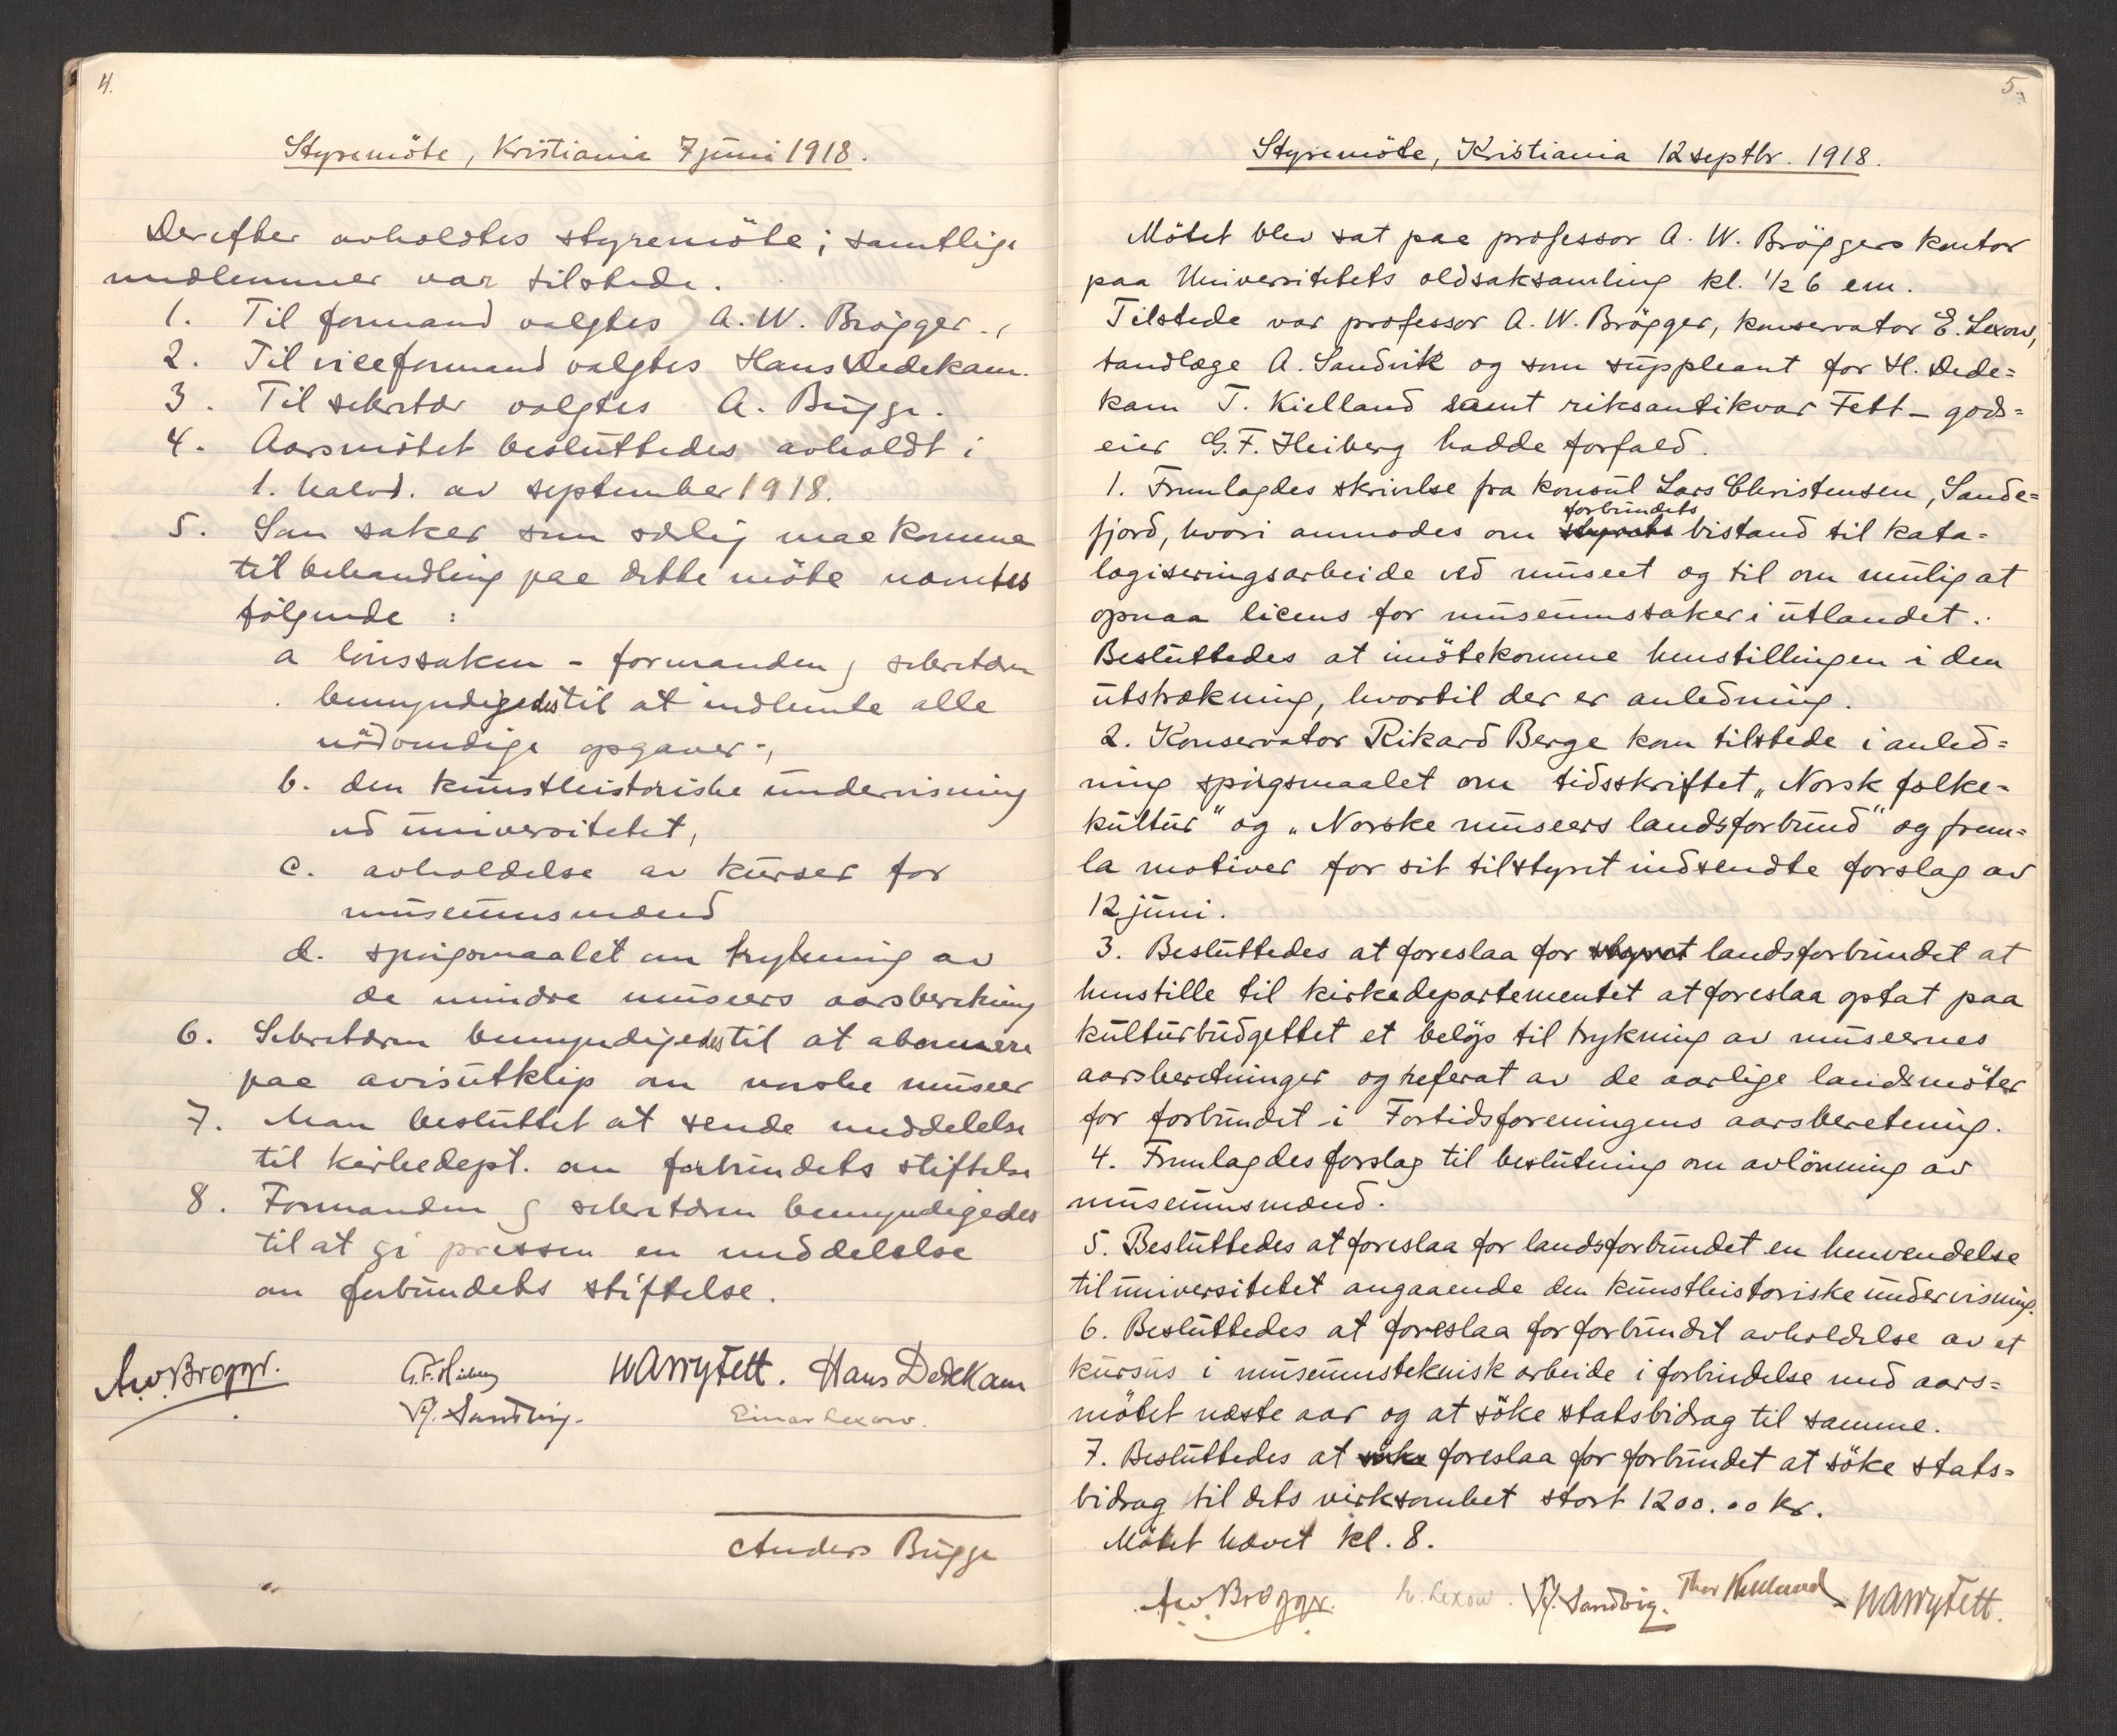 4.
Styremöte, Kristiania 7 juni 1918.
Derefter avholdtes styremöte; samtlige
medlemmer var tilstede.
1. Til formand valgtes A. W. Brøgger.,
2. Til viceformand valgtes Hans Dedekam.
3. Til sekretær valgtes A. Bugge.
4. Aarsmötet besluttedes avholdt i
1. halvd. av september 1918.
5. Som saker som særlig maa komme
til behandling paa dette möte nævntes
følgende :
a lönssaken - formanden og sekretæren
bemyndigedes til at indhente alle
nödvendige opgaver.,
b. den kunsthistoriske undervisning
ved universitetet,
c. avholdelse av kurser for
museumsmænd
d. spörgsmaalet om trykning av
de mindre museers aarsberetning
6. Sekretæren bemyndigedes til at abonnere
paa avisutklip om norske museer
7. Man besluttet at sende meddelelse
til kirkedept. om forbundets stiftelse
8. Formanden og sekretæren bemyndigedes
til at gi pressen en meddelelse
om forbundets stiftelse.
A.W. Brøgger. G. F. Heiberg Harry Fett. Hans Dedekam
A. Sandvig. Einar Lexow.
Anders Bugge
5.
Styremöte, Kristiania 12 septbr. 1918.
Mötet blev sat paa professor A. W. Bröggers kontor
paa Universitetets oldsaksamling kl. 1/2 6 em.
Tilstede var professor A. W. Brögger, konservator E. Lexow,
tandlæge A. Sandvik og som suppleant for H. Dede=
kam T. Kielland samt riksantikvar Fett – gods=
eier G. F. Heiberg hadde forfald.
1. Fremlagdes skrivelse fra konsul Lars Christensen, Sande=
fjord, hvori anmodes om styrets forbundets bistand til kata=
logiseringsarbeide ved museet og til om mulig at
opnaa licens for museumssaker i utlandet.
Besluttedes at imötekomme henstillingen i den
utstrækning, hvortil der er anledning.
2. Konservator Rikard Berge kom tilstede i anled=
ning spörgsmaalet om tidsskriftet „Norsk folke=
kultur" og „Norske museers landsforbund" og frem=
la motiver for sit til styret indsendte forslag av
12 juni.
3. Besluttedes at foreslaa for styret landsforbundet at
henstille til kirkedepartementet at foreslaa optat paa
kulturbudgettet et beløp til trykning av museernes
aarsberetninger og referat av de aarlige landsmöter
for forbundet i Fortidsforeningens aarsberetning.
4. Fremlagdes forslag til beslutning om avlönning av
museumsmænd.
5. Besluttedes at foreslaa for landsforbundet en henvendelse
til universitetet angaaende den kunsthistoriske undervisning.
6. Besluttedes at foreslaa for forbundet avholdelse av et
kursus i museumsteknisk arbeide i forbindelse med aars=
mötet næste aar og at söke statsbidrag til samme.
7. Besluttedes at söke foreslaa for forbundet at söke stats=
bidrag til dets virksomhet stort 1200.00 kr.
Mötet hævet kl. 8.
A.W. Brøgger. E. Lexow. A. Sandvig. Thor Kielland Harry Fett.